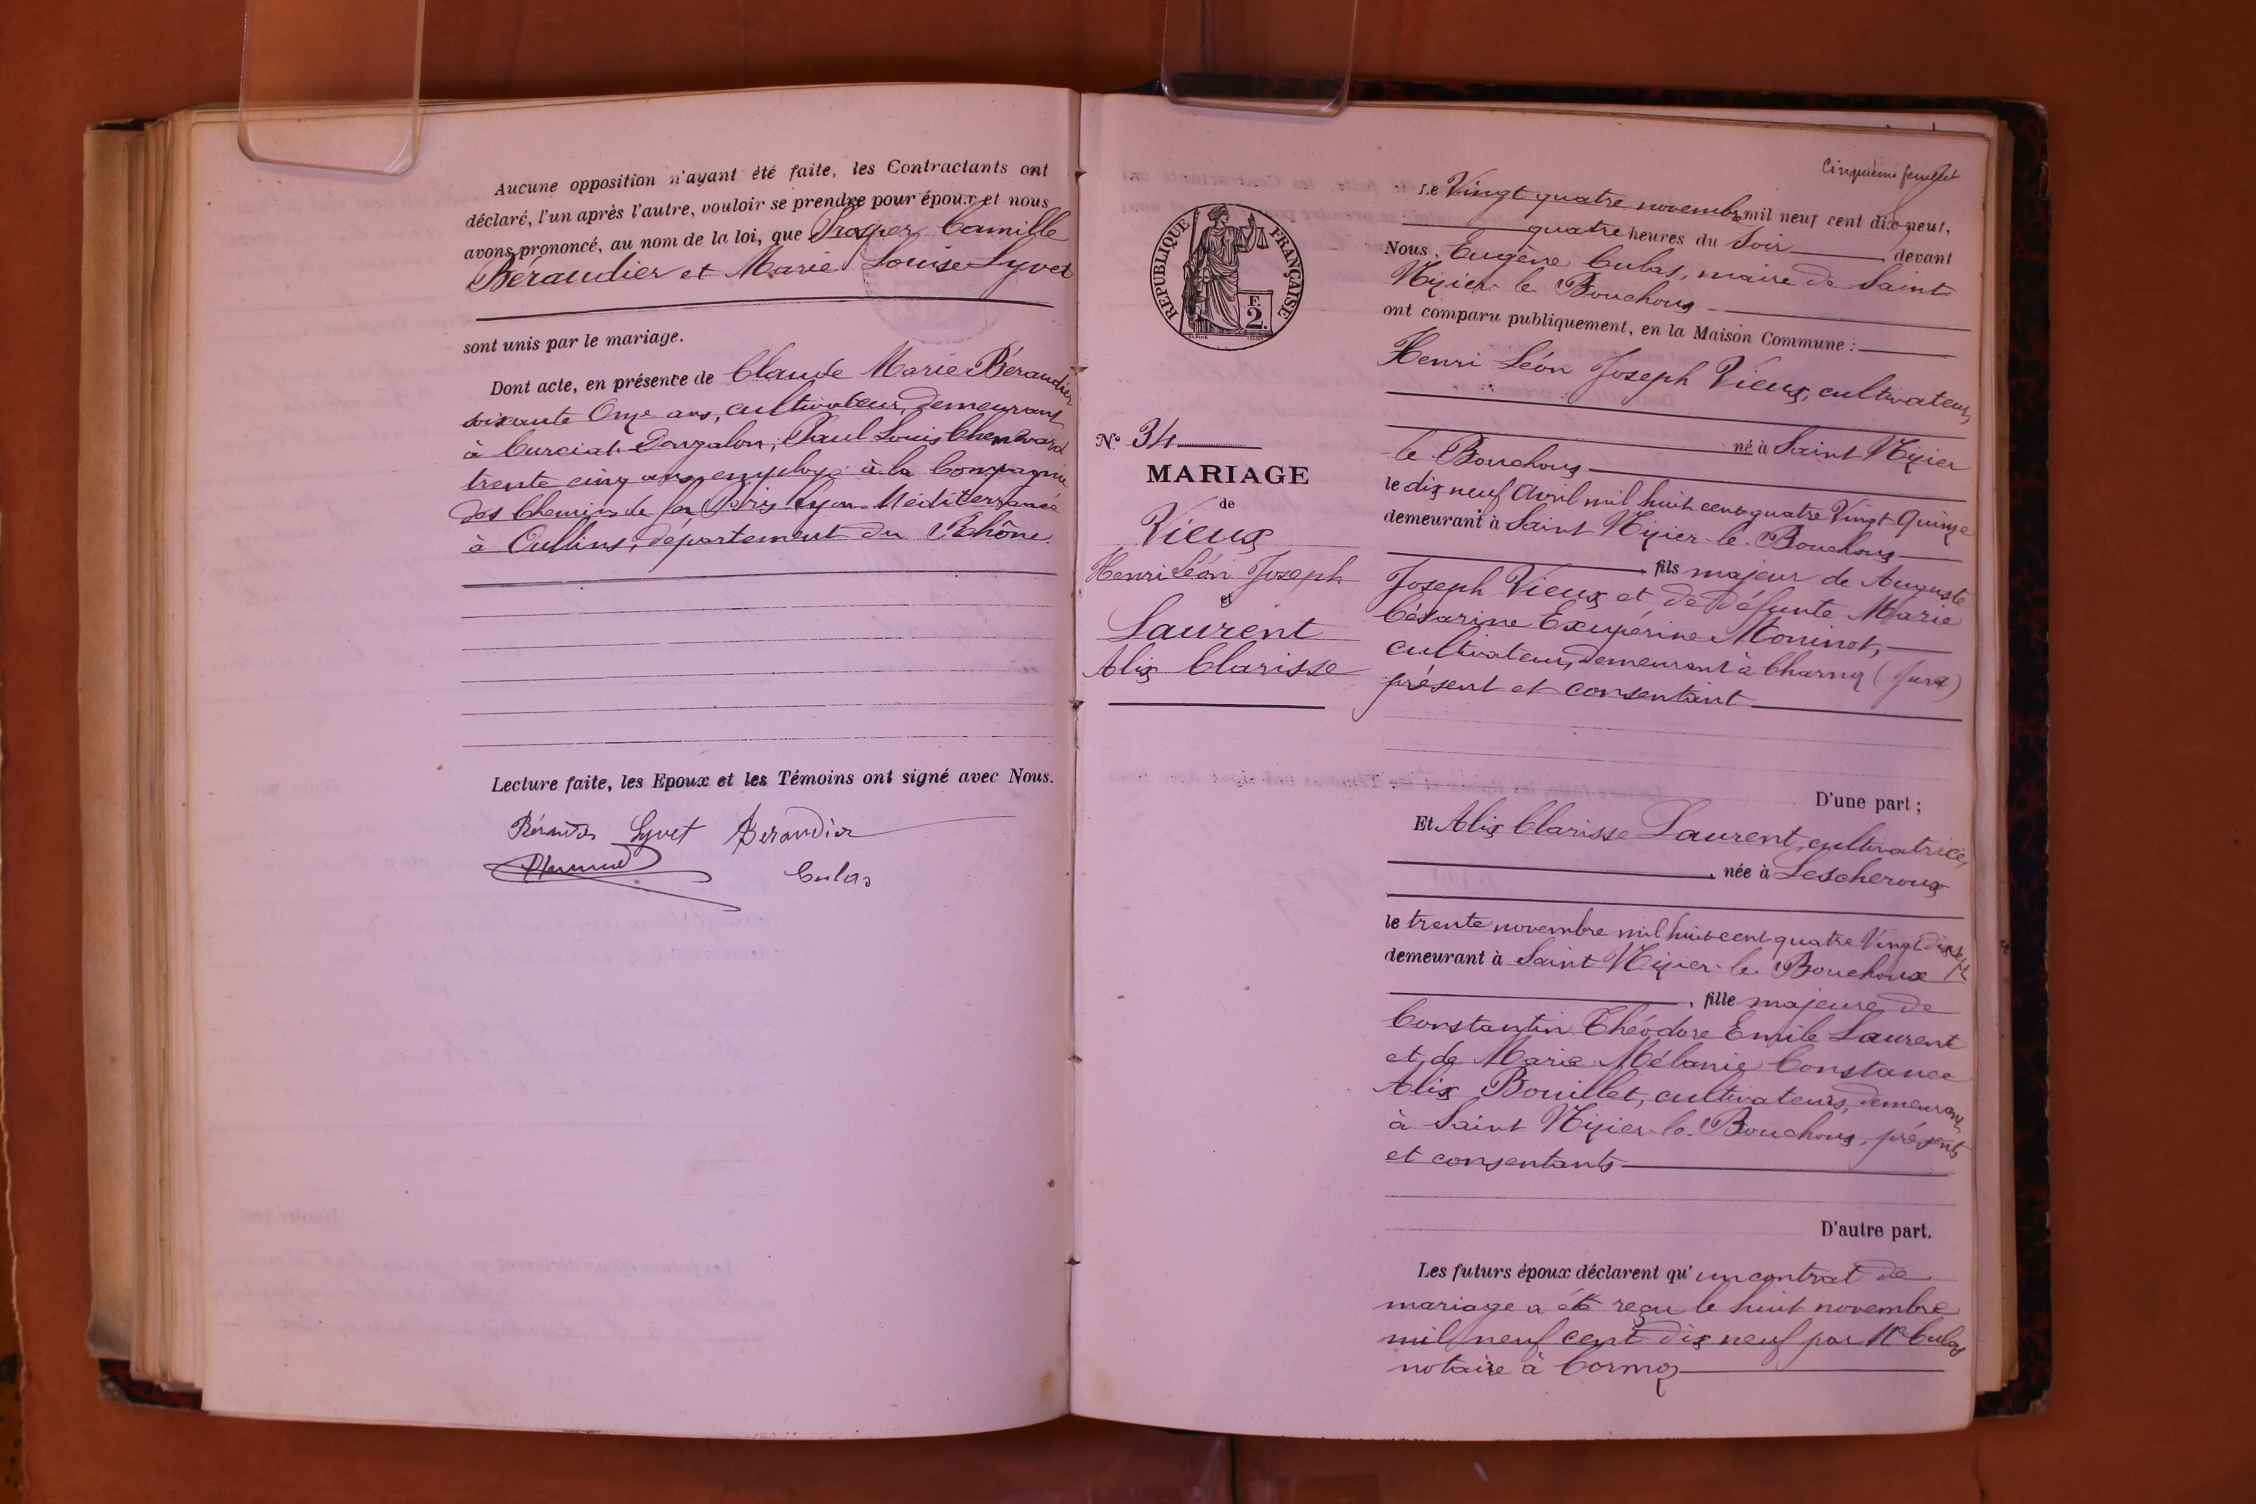 Aucune opposition n'ayant été faite, les Contractants ont
déclaré, l'un après l'autre, vouloir se prendre pour époux et nous
avons prononcé, au nom de la loi, que Prosper Camille
Béraudier et Marie Louise Lyvet
sont unis par le mariage.
Dont acte, en présence de Claude Marie Béraudier
soixante Onze ans, cultivateur, demeurant
à Curciat Dongalon; Paul Louis
trente cinq ans, employé à la Compagnie
des Chemins de fer Paris Lyon Méditerranée
à Oullins, département du Rhône.
Lecture faite, les Epoux et les Témoins ont signé avec Nous.
Lyvet Beraudier
Culas
Cinquième feuillet
REPUBLIQUE FRANÇAISE
F.
2.
N° 34
MARIAGE
de
Vieux
Henri Léon Joseph
et
Laurent
Alix Clarisse
Le Vingt quatre novembre mil neuf cent dix-neuf,
quatre heures du Soir, devant
Nous, Eugène Culas, maire de Saint
Nizier le Bouchoux
ont comparu publiquement, en la Maison Commune :
Henri Léon Joseph Vieux, cultivateur,
né à Saint Nizier
le Bouchoux
le dix neuf Avril mil huit cent quatre Vingt Quinze
demeurant à Saint Nizier le Bouchoux
fils majeur de Auguste
Joseph Vieux et de défunte Marie
Césarine Exupérine Moninot,
cultivateur, demeurant à (Jura)
présent et consentant
D'une part ;
Et Alix Clarisse Laurent, cultivatrice,
, née à Lescheroux
le trente novembre mil huit cent quatre Vingt
demeurant à Saint Nizier le Bouchoux
, fille majeure de
Constantin Théodore Emile Laurent
et de Marie Mélanie Constance
Alix Bouillet, cultivateurs, demeurant
à Saint Nizier le Bouchoux, présents
et consentants
D'autre part.
Les futurs époux déclarent qu'un contrat de
mariage a été reçu le huit novembre
mil neuf cent dix neuf par Me Culas
notaire à Cormoz